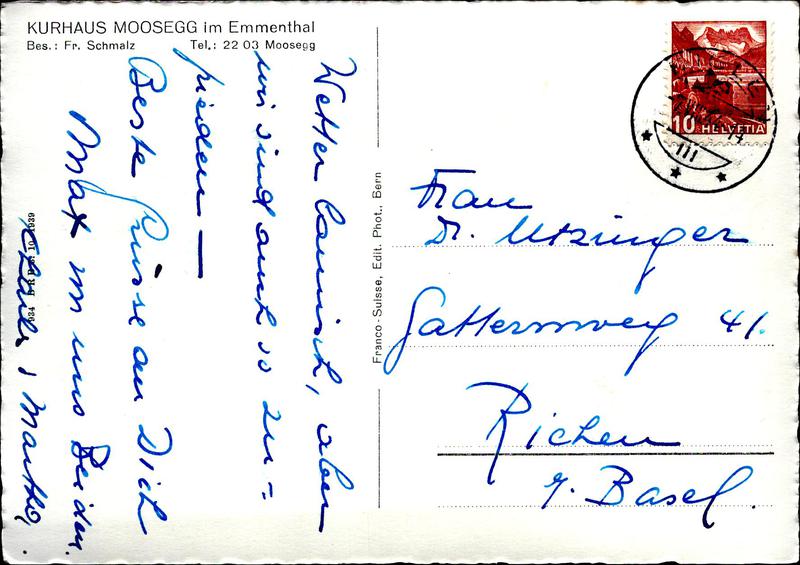 KURHAUS MOOSEGG im Emmenthal
Bes.: Fr. Schmalz Tel.: 22 03 Moosegg
Wetter launisch, aber
wir sind auch so zu=
frieden —
Beste Grüsse an Dich
Max von uns Beiden.
& Martha.
Franco-Suisse, Edit. Phot., Bern
10 HELVETIA
III
Frau
Dr. Utzinger
Gatternweg 41.
Riehen
b. Basel.